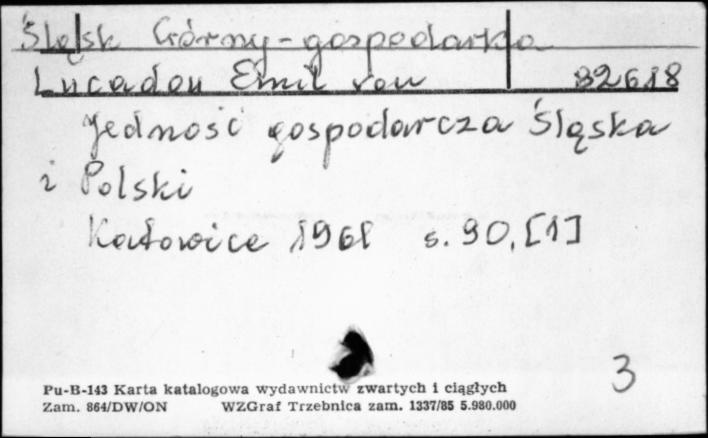 Śląsk Górny - gospodarka
Lucadou Emil von 82618
Jedność gospodarcza Śląska
i Polski
Katowice 1961 s. 90, [1]
3
Pu-B-143 Karta katalogowa wydawnictw zwartych i ciągłych
Zam. 864/DW/ON WZGraf Trzebnica zam. 1337/85 5.980.000